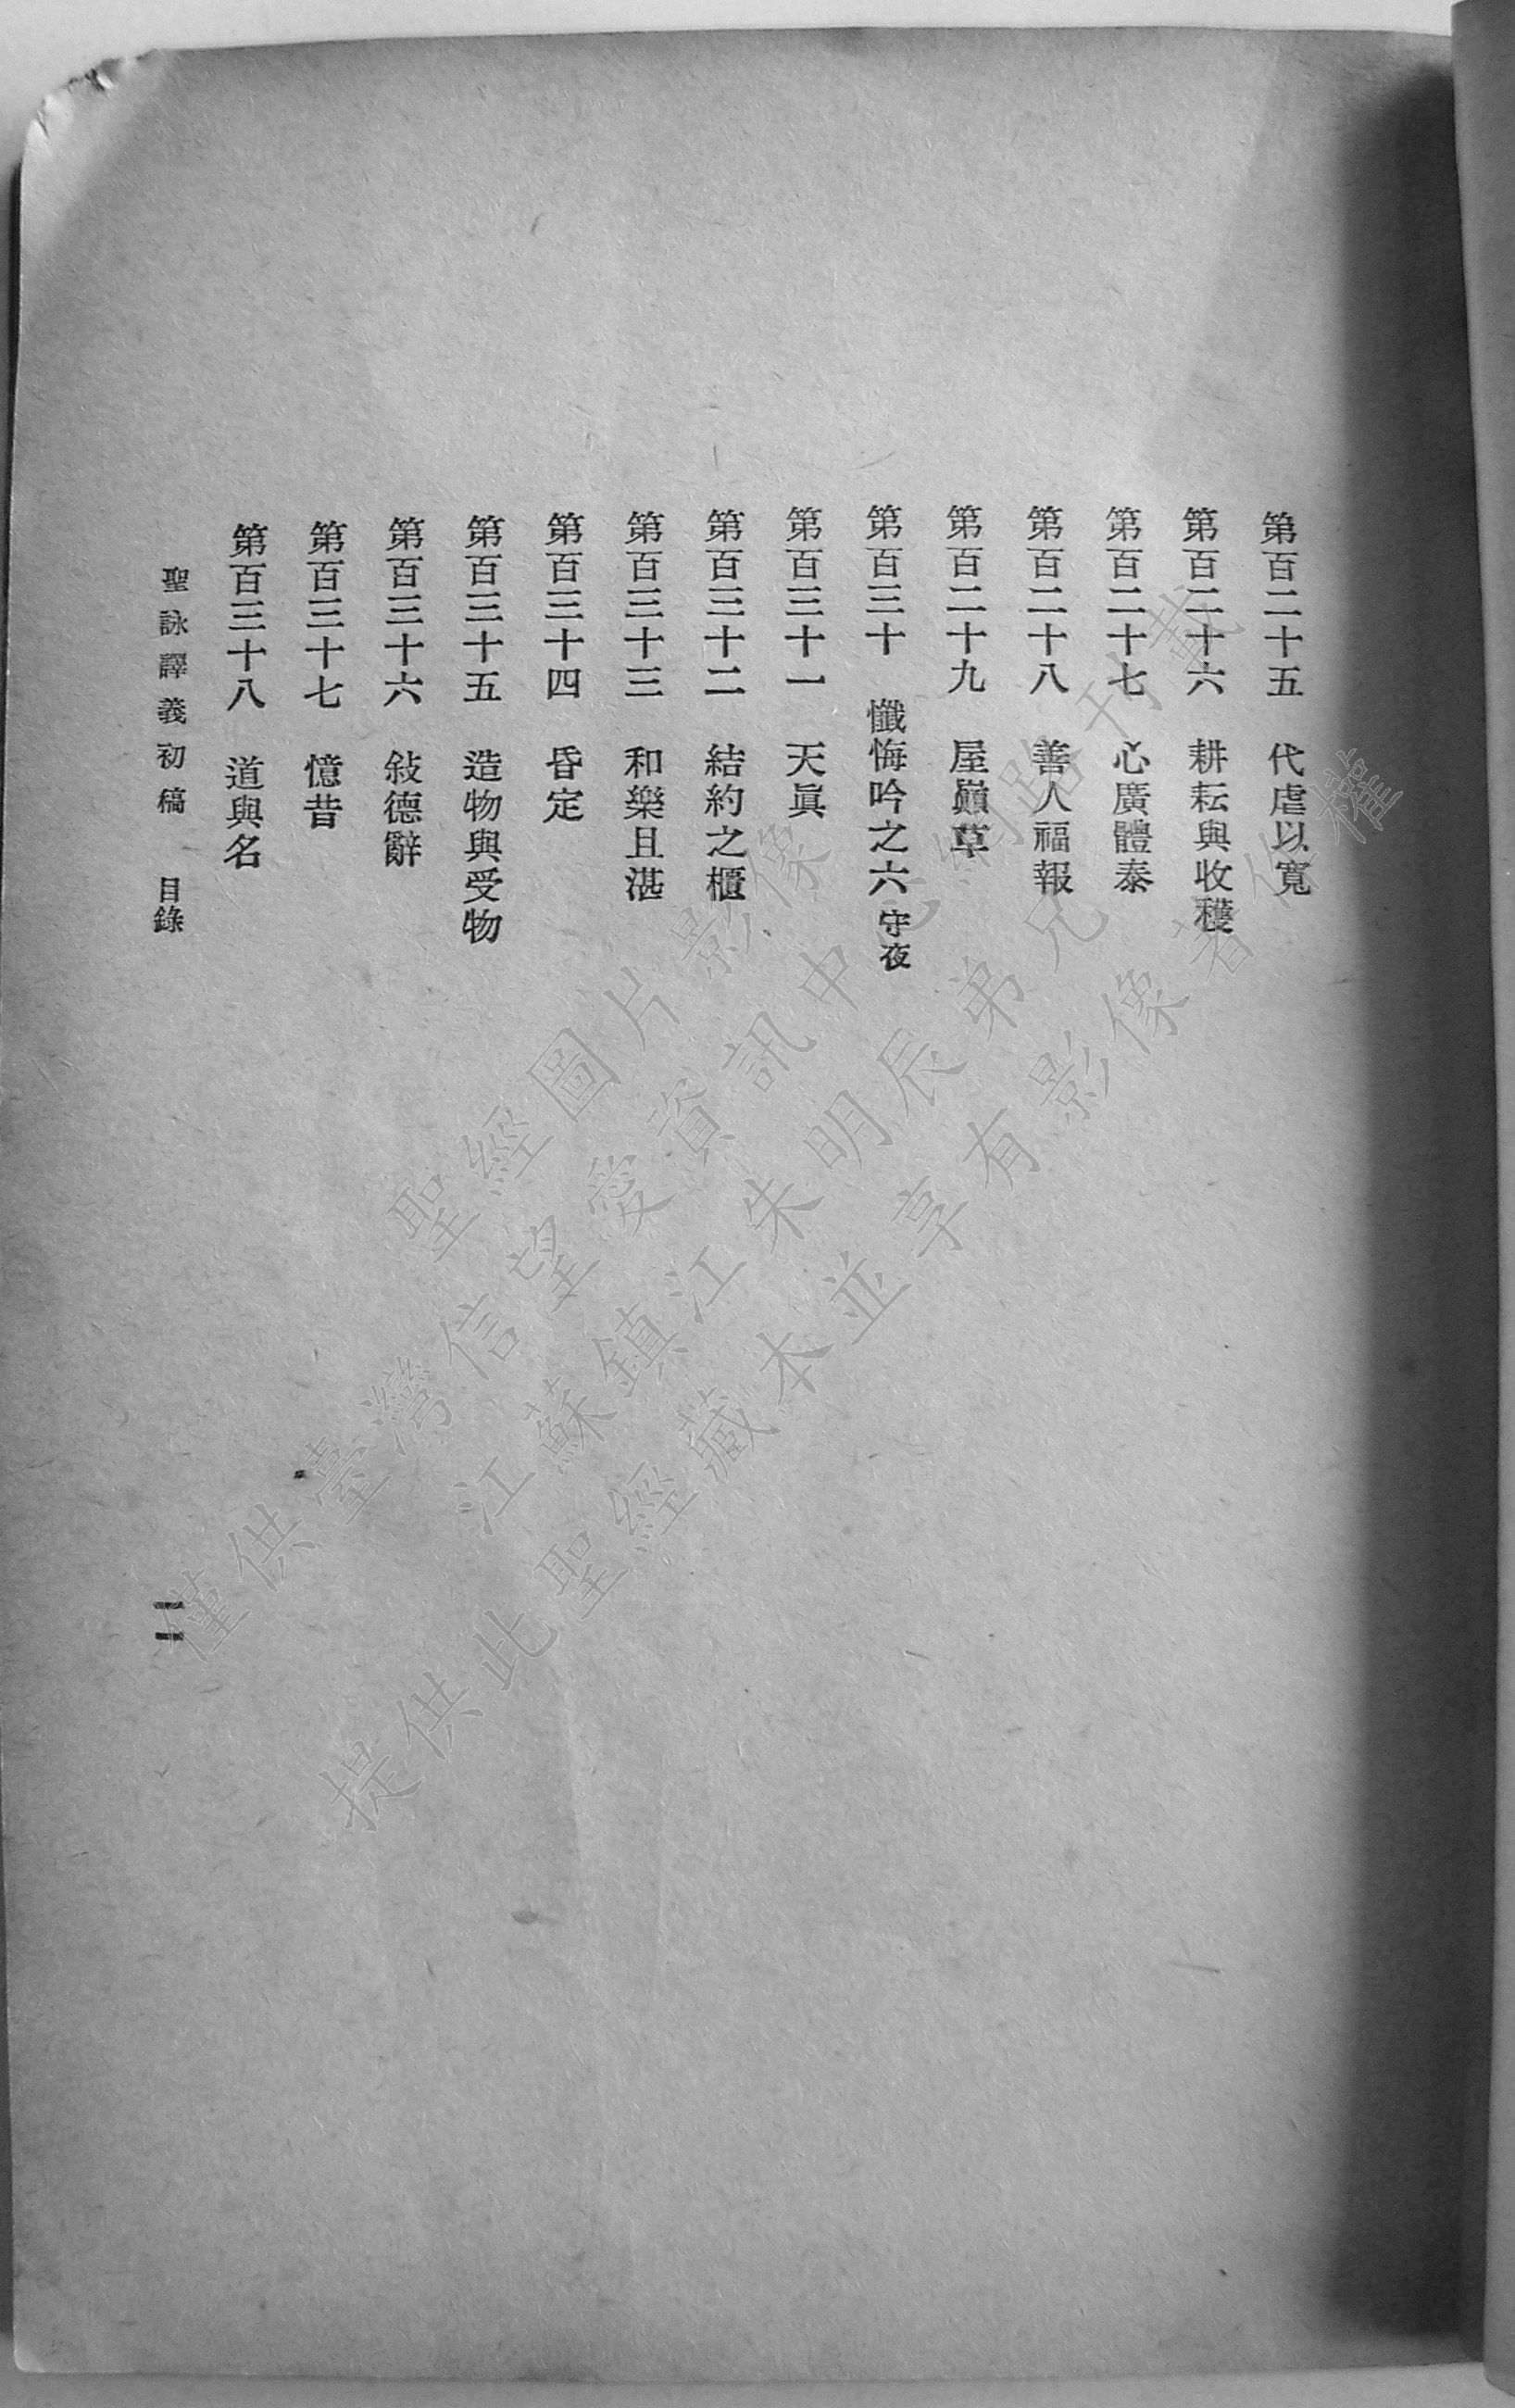 第百二十五　代虐以寬
第百二十六　耕耘與收穫
第百二十七　心廣體泰
第百二十八　善人福報
第百二十九　屋巔草
第百三十　懺悔吟之六　守夜
第百三十一　天眞
第百三十二　結約之櫃
第百三十三　和樂且湛
第百三十四　昏定
第百三十五　造物與受物
第百三十六　敍德辭
第百三十七　憶昔
第百三十八　道與名
聖詠譯義初稿　目錄　一一
聖經圖片影像
僅供臺灣信望愛資訊中心網路刊載
江蘇鎮江朱明辰弟兄
提供此聖經藏本並享有影像著作權